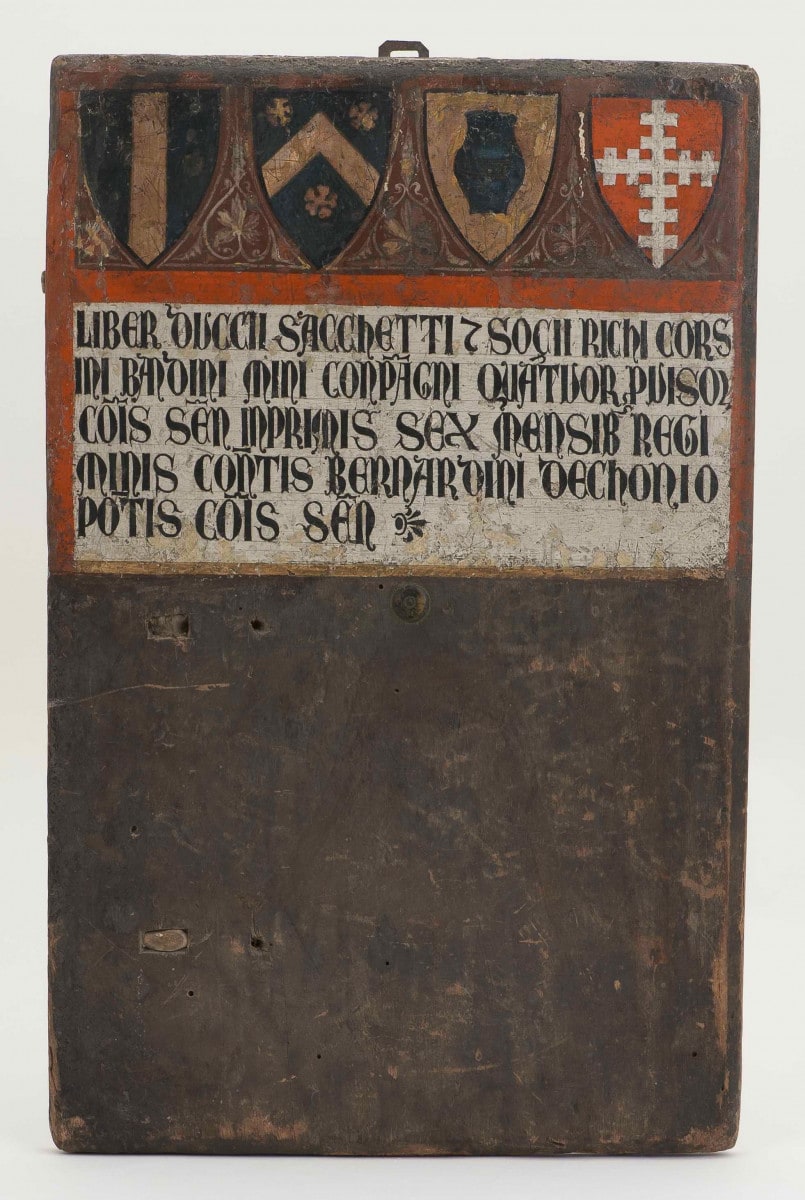 LIBER DUCCII SACCHETTI ⁊ SOÇII RICHI CORS
INI BĀDINI MINI CONPĀGNI QUATUOR ꝒVISOꝜ
COĪS SEÑ INPRIMIS SEX MENSIB REGI
MINIS COM̄TIS BERNARDINI DECHONIO
POT̄IS COĪS SEÑ